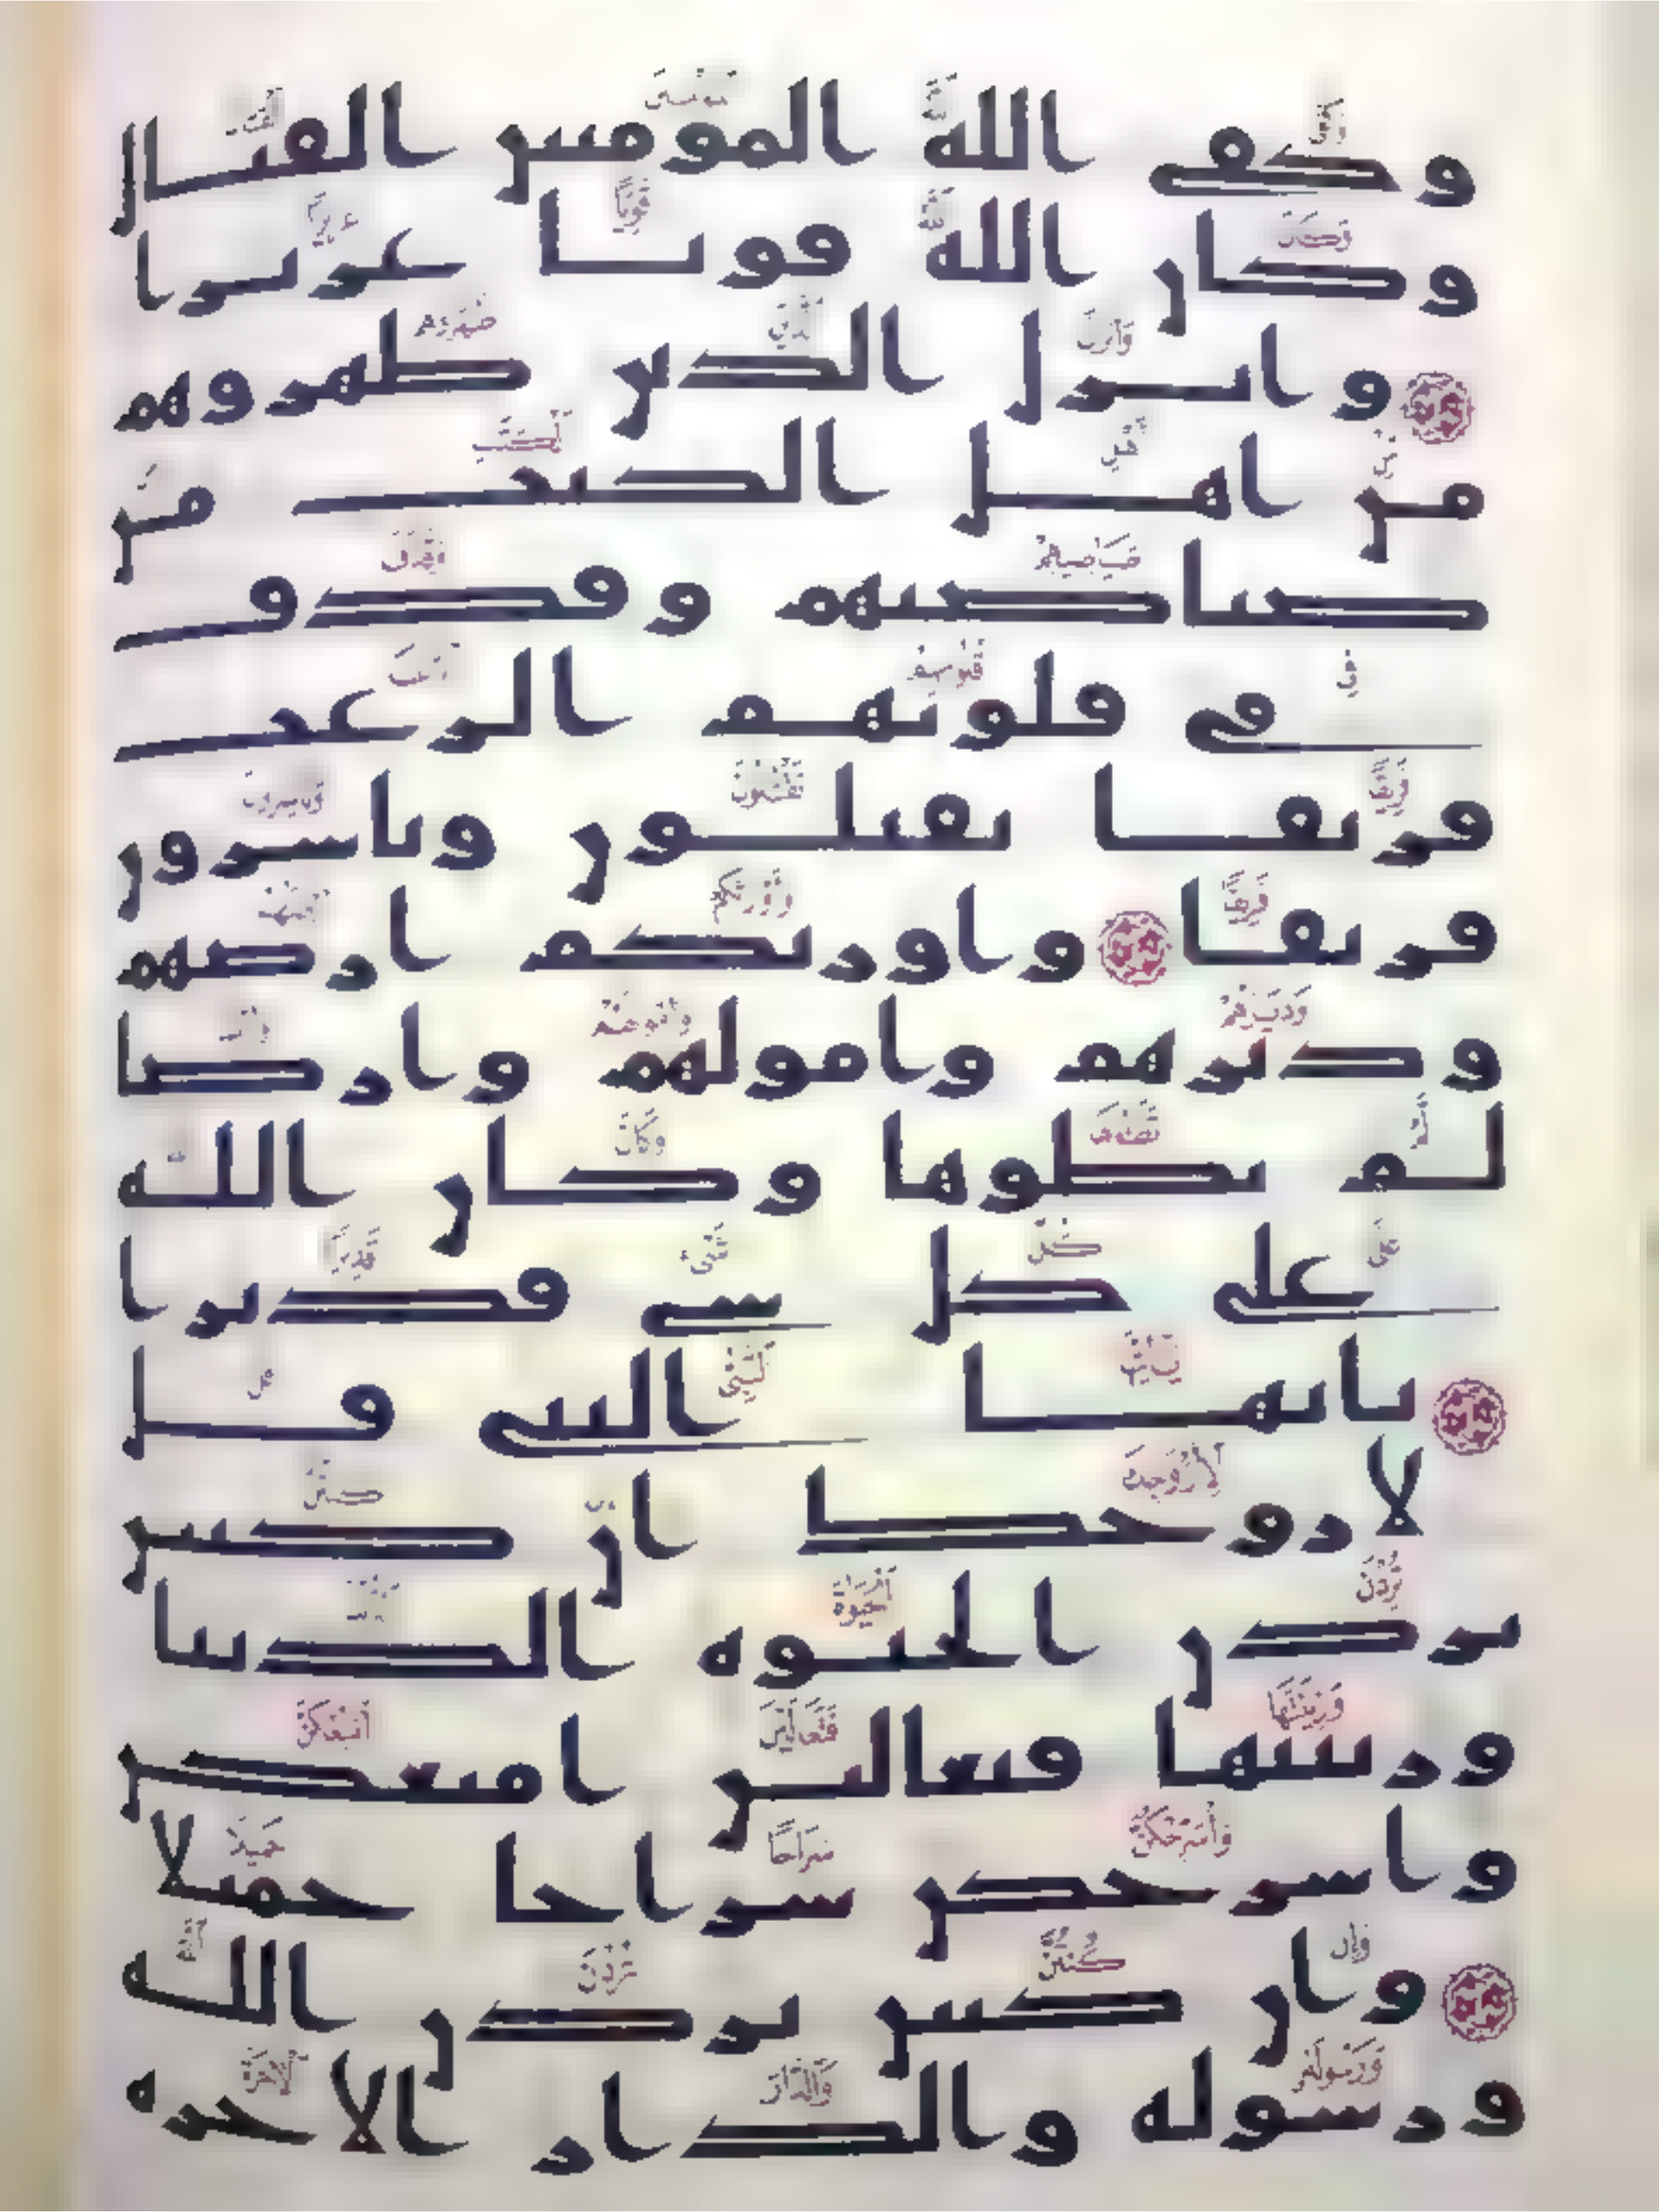 وكفى الله المومنين القتال
وكان الله قويا عزيزا
وانزل الذين ظهروهم
من اهل الكتب من
صياصيهم وقذف
في قلوبهم الرعب
فريقا تقتلون وتاسرون
فريقا واورثكم ارضهم
وديرهم وامولهم وارضا
لم تطوها وكان الله
على كل شي قديرا
يايها النبي قل
لازوجك ان كنتن
تردن الحيوة الدنيا
وزينتها فتعالين امتعكن
واسرحكن سراحا جميلا
وان كنتن تردن الله
ورسوله والدار الاخرة